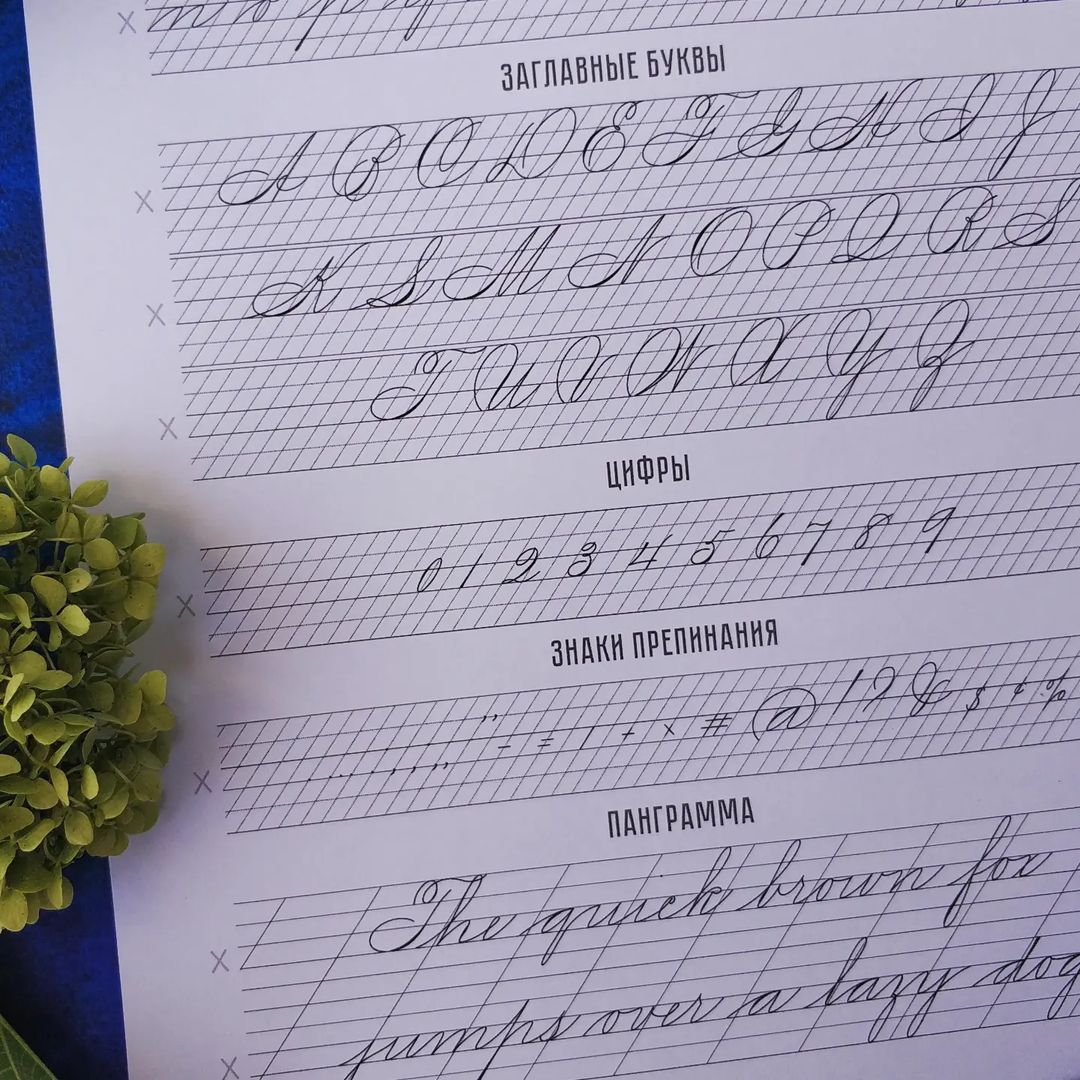 ЗАГЛАВНЫЕ БУКВЫ
A B C D E F G H I J
x
K L M N O P Q R S
x
T U V W X Y Z
x
ЦИФРЫ
0 1 2 3 4 5 6 7 8 9
x
ЗНАКИ ПРЕПИНАНИЯ
. ... , , , ,, " - = / + × # @ ! ? & $ ¢ %
x
ПАНГРАММА
The quick brown fox
x
jumps over a lazy dog
x